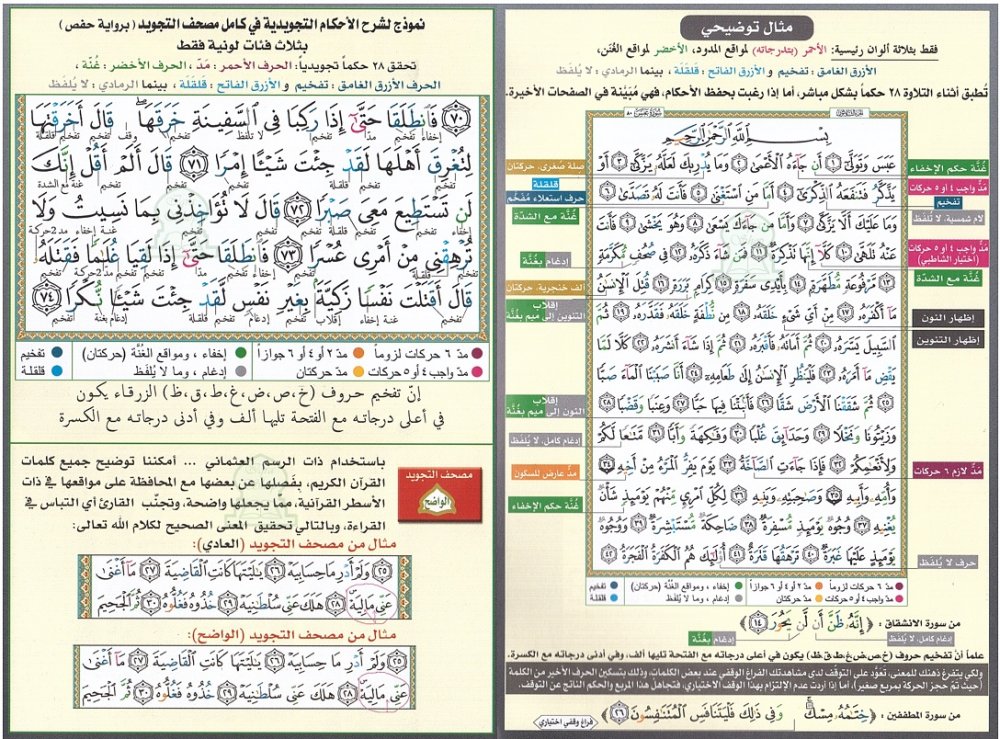 مثال توضيحي
فقط بثلاثة ألوان رئيسية: الأحمر (بتدرجاته) لمواقع المدود، الأخضر لمواقع الغُنَن،
الأزرق الغامق: تفخيم و الأزرق الفاتح: قَلقَلة، بينما الرمادي: لا يُلفَظ
تُطبق أثناء التلاوة ٢٨ حكماً بشكل مباشر، أما إذا رغبت بحفظ الأحكام، فهي مُبَيَّنة في الصفحات الأخيرة.
بِسْمِ ٱللَّهِ ٱلرَّحْمَٰنِ ٱلرَّحِيمِ
عَبَسَ وَتَوَلَّىٰٓ ١ أَن جَآءَهُ ٱلْأَعْمَىٰ ٢ وَمَا يُدْرِيكَ لَعَلَّهُۥ يَزَّكَّىٰٓ ٣ أَوْ
يَذَّكَّرُ فَتَنفَعَهُ ٱلذِّكْرَىٰٓ ٤ أَمَّا مَنِ ٱسْتَغْنَىٰ ٥ فَأَنتَ لَهُۥ تَصَدَّىٰ ٦
وَمَا عَلَيْكَ أَلَّا يَزَّكَّىٰ ٧ وَأَمَّا مَن جَآءَكَ يَسْعَىٰ ٨ وَهُوَ يَخْشَىٰ ٩ فَأَنتَ
عَنْهُ تَلَهَّىٰ ١٠ كَلَّآ إِنَّهَا تَذْكِرَةٌ ١١ فَمَن شَآءَ ذَكَرَهُۥ ١٢ فِى صُحُفٍ مُّكَرَّمَةٍ
١٣ مَّرْفُوعَةٍ مُّطَهَّرَةٍۭ ١٤ بِأَيْدِى سَفَرَةٍ ١٥ كِرَامٍۭ بَرَرَةٍ ١٦ قُتِلَ ٱلْإِنسَٰنُ
مَآ أَكْفَرَهُۥ ١٧ مِنْ أَىِّ شَىْءٍ خَلَقَهُۥ ١٨ مِن نُّطْفَةٍ خَلَقَهُۥ فَقَدَّرَهُۥ ١٩ ثُمَّ
ٱلسَّبِيلَ يَسَّرَهُۥ ٢٠ ثُمَّ أَمَاتَهُۥ فَأَقْبَرَهُۥ ٢١ ثُمَّ إِذَا شَآءَ أَنشَرَهُۥ ٢٢ كَلَّا لَمَّا
يَقْضِ مَآ أَمَرَهُۥ ٢٣ فَلْيَنظُرِ ٱلْإِنسَٰنُ إِلَىٰ طَعَامِهِۦٓ ٢٤ أَنَّا صَبَبْنَا ٱلْمَآءَ صَبًّا
٢٥ ثُمَّ شَقَقْنَا ٱلْأَرْضَ شَقًّا ٢٦ فَأَنۢبَتْنَا فِيهَا حَبًّا ٢٧ وَعِنَبًا وَقَضْبًا ٢٨
وَزَيْتُونًا وَنَخْلًا ٢٩ وَحَدَآئِقَ غُلْبًا ٣٠ وَفَٰكِهَةً وَأَبًّا ٣١ مَّتَٰعًا لَّكُمْ
وَلِأَنْعَٰمِكُمْ ٣٢ فَإِذَا جَآءَتِ ٱلصَّآخَّةُ ٣٣ يَوْمَ يَفِرُّ ٱلْمَرْءُ مِنْ أَخِيهِ ٣٤
وَأُمِّهِۦ وَأَبِيهِ ٣٥ وَصَٰحِبَتِهِۦ وَبَنِيهِ ٣٦ لِكُلِّ ٱمْرِئٍ مِّنْهُمْ يَوْمَئِذٍ شَأْنٌ
يُغْنِيهِ ٣٧ وُجُوهٌ يَوْمَئِذٍ مُّسْفِرَةٌ ٣٨ ضَاحِكَةٌ مُّسْتَبْشِرَةٌ ٣٩ وَوُجُوهٌ
يَوْمَئِذٍ عَلَيْهَا غَبَرَةٌ ٤٠ تَرْهَقُهَا قَتَرَةٌ ٤١ أُو۟لَٰٓئِكَ هُمُ ٱلْكَفَرَةُ ٱلْفَجَرَةُ ٤٢
غُنَّة حكم الإخفاء
مدّ واجب ٤ أو ٥ حركات
تفخيم
لام شمسية، لا يُلفَظ
مدّ واجب ٤ أو ٥ حركات
(اختيار الشاطبي)
غُنَّة مع الشدّة
إظهار النون
إظهار التنوين
مَدّ لازم ٦ حركات
حرف لا يُلفَظ
صلة صُغرى، حركتان
قلقلة
حرف استعلاء مُفَخَّم
غُنَّة مع الشدّة
إدغام بغُنَّة
ألف خنجرية، حركتان
إقلاب
التنوين إلى ميم بغُنَّة
إقلاب
النون إلى ميم بغُنَّة
إدغام كامل، لا يُلفَظ
مَدّ عارض للسكون
غُنَّة حكم الإخفاء
مدّ ٦ حركات لزوماً مدّ ٢ أو ٤ أو ٦ جوازاً إخفاء، ومواقع الغُنَّة (حركتان) تفخيم
مدّ واجب ٤ أو ٥ حركات مدّ حركتان إدغام، وما لا يُلفَظ قلقلة
من سورة الانشقاق: ﴿ إِنَّهُۥ ظَنَّ أَن لَّن يَحُورَ ١٤ ﴾
إدغام كامل، لا يُلفَظ إدغام بغُنَّة
علماً أنّ تفخيم حروف (خ،ص،ض،غ،ط،ق،ظ) يكون في أعلى درجاته مع الفتحة تليها ألف، وفي أدنى درجاته مع الكسرة.
ولكي يتفرغ ذهنك للمعنى، تَعَوَّد على التوقف لدى مشاهدتك الفراغ الوقفي عند بعض الكلمات، وذلك بتسكين الحرف الأخير من الكلمة
(حيث تمّ حجز الحركة بمربع صغير)، أما إذا أردت عدم الإلتزام بهذا الوقف الاختياري، فتجاهل هذا المربع والحكم الناتج عن التوقف.
من سورة المطففين: ﴿ خِتَٰمُهُۥ مِسْكٌ وَفِى ذَٰلِكَ فَلْيَتَنَافَسِ ٱلْمُتَنَٰفِسُونَ ٢٦ ﴾
فراغ وقفي اختياري
نموذج لشرح الأحكام التجويدية في كامل مصحف التجويد (برواية حفص)
بثلاث فئات لونية فقط
تحقق ٢٨ حكماً تجويدياً: الحرف الأحمر: مَدّ، الحرف الأخضر: غُنَّة،
الحرف الأزرق الغامق: تفخيم و الأزرق الفاتح: قَلقَلة، بينما الرمادي: لا يُلفَظ
٧٠ فَٱنطَلَقَا حَتَّىٰٓ إِذَا رَكِبَا فِى ٱلسَّفِينَةِ خَرَقَهَا ۖ قَالَ أَخَرَقْتَهَا
إخفاء تفخيم تفخيم لا تلفظ تفخيم وقف تفخيم تفخيم قلقلة
لِتُغْرِقَ أَهْلَهَا لَقَدْ جِئْتَ شَيْـًٔا إِمْرًا ٧١ قَالَ أَلَمْ أَقُلْ إِنَّكَ
تفخيم قلقلة تفخيم تفخيم تفخيم غنة مع الشدة
لَن تَسْتَطِيعَ مَعِىَ صَبْرًا ٧٢ قَالَ لَا تُؤَاخِذْنِى بِمَا نَسِيتُ وَلَا
إخفاء تفخيم قلقلة تفخيم تفخيم غنة إخفاء مد 2 حركة
تُرْهِقْنِى مِنْ أَمْرِى عُسْرًا ٧٣ فَٱنطَلَقَا حَتَّىٰٓ إِذَا لَقِيَا غُلَٰمًا فَقَتَلَهُۥ
قَالَ أَقَتَلْتَ نَفْسًا زَكِيَّةًۢ بِغَيْرِ نَفْسٍ لَّقَدْ جِئْتَ شَيْـًٔا نُّكْرًا ٧٤
مدّ ٦ حركات لزوماً مدّ ٢ أو ٤ أو ٦ جوازاً إخفاء، ومواقع الغُنَّة (حركتان) تفخيم
مدّ واجب ٤ أو ٥ حركات مدّ حركتان إدغام، وما لا يُلفَظ قلقلة
إنّ تفخيم حروف (خ،ص،ض،غ،ط،ق،ظ) الزرقاء يكون
في أعلى درجاته مع الفتحة تليها ألف وفي أدنى درجاته مع الكسرة
مصحف التجويد
الواضح
باستخدام ذات الرسم العثماني ... أمكننا توضيح جميع كلمات
القرآن الكريم، بفَصلها عن بعضها مع المحافظة على مواقعها في ذات
الأسطر القرآنية، ممّا يجعلها واضحة، وتجنّب القارئ أي التباس في
القراءة، وبالتالي تحقيق المعنى الصحيح لكلام الله تعالى:
مثال من مصحف التجويد (العادي):
٢٥ وَلَمْ أَدْرِ مَا حِسَابِيَهْ ٢٦ يَٰلَيْتَهَا كَانَتِ ٱلْقَاضِيَةَ ٢٧ مَآ أَغْنَىٰ
عَنِّى مَالِيَهْ ٢٨ هَلَكَ عَنِّى سُلْطَٰنِيَهْ ٢٩ خُذُوهُ فَغُلُّوهُ ٣٠ ثُمَّ ٱلْجَحِيمَ
مثال من مصحف التجويد (الواضح):
٢٥ وَلَمْ أَدْرِ مَا حِسَابِيَهْ ٢٦ يَٰلَيْتَهَا كَانَتِ ٱلْقَاضِيَةَ ٢٧ مَآ أَغْنَىٰ
عَنِّى مَالِيَهْ ٢٨ هَلَكَ عَنِّى سُلْطَٰنِيَهْ ٢٩ خُذُوهُ فَغُلُّوهُ ٣٠ ثُمَّ ٱلْجَحِيمَ